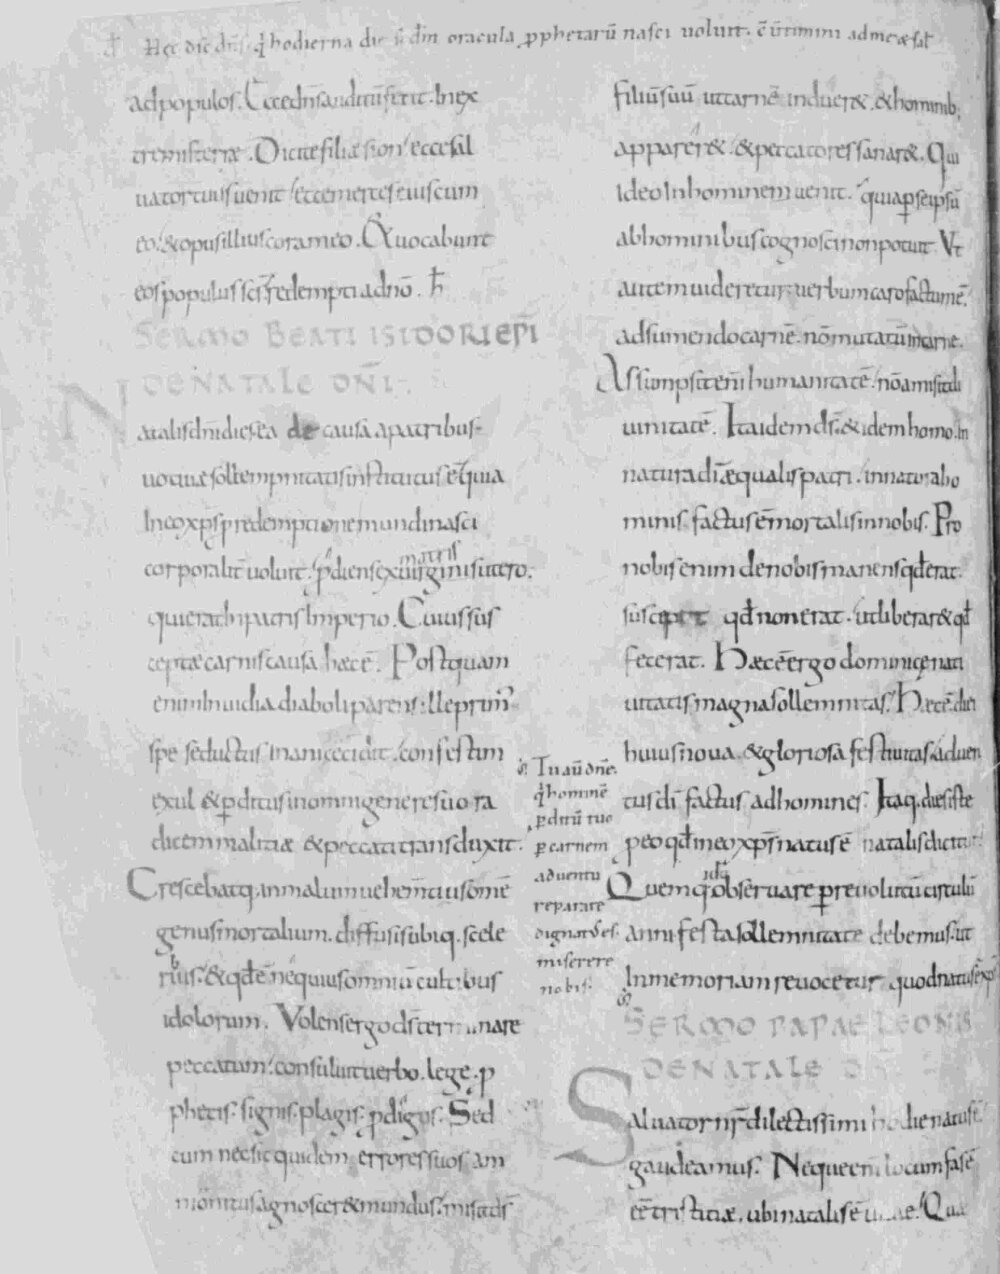 Hęc dic̄ dn̄s qͥ hodierna die sc̄dm̄ oracula ꝓphetarū nasci uoluit. c̄ ūt omnī ad me & saꝉ
ad populos. Ecce dn̄s auditū fecit. In ex
tremis terræ. Dicite filiæ sion ecce sal
uator tuus uenit ecce merces eius cum
eo. & opus illius coram eo. Et uocabunt
eos populus sc̄s redempti a dnō.
SERMO BEATI ISIDORI EPĪ
DE NATALE DNĪ
Natalis dnī dies ea de causa a patribus
uotiuæ sollempnitatis institutus ē quia
In eo xp̄s ꝓ redemptione mundi nasci
corporalit̄ uoluit. ꝓdiens ex uirginis utero.
matris
qui erat In patris Imperio. Cuius sus
ceptæ carnis causa hæc ē. Postquam
enim Inuidia diaboli parens ille prim̄
spe seductus Inani cecidit. confestim
exul & ꝑditus in omni genere suo ra
dicem malitiæ & peccati transduxit.
Crescebatq; In malum uehem̄tius om̄e
genus mortalium. diffusis ubiq; scele
rib; & qd̄ ē nequius omniū cultibus
idolorum. Volens ergo ds̄ terminare
peccatum. consuluit uerbo. lege. ꝓ
phetis. signis. plagis. ꝓdigiis. Sed
cum nec sic quidem errores suos am
monitus agnoscer& mundus. misit ds̄
Tu aū dn̄e
qͥ hominē
ꝑditū tuo
ꝑ carnem
aduentu
reparare
dignatus es.
miserere
nobis.
filiū suū ut carnē induer&. & hominib;
apparer& & peccatores sanar&. Qui
Ideo In hominem uenit. quia ꝑ seipsū
ab hominibus cognosci non potuit. Vt
autem uideretur. uerbum caro factum ē.
adsumendo carnē. nō mutatū in carnē.
Assūmpsit enī humanitatē. nō amisit di
uinitatē. Ita idem ds̄. & idem homo. In
natura dī æqualis patri. in natura ho
minis factus ē mortalis in nobis. Pro
nobis enim de nobis manens qd̄ erat.
suscepit qd̄ non erat. ut liberar& qd̄
fecerat. Hæc ē ergo dominicę nati
uitatis magna sollemnitas. Hæc ē diei
huius noua & gloriosa festiuitas. aduen
tus dī factus ad homines. Itaq; dies iste
ꝑ eo qd̄ in eo xp̄s natus ē natalis dicitur.
Quem idcͦ obseruare ꝑ reuolutū circulū
anni festa sollemnitate debemus. ut
In memoriam reuocetur quod natus ē xp̄s
SERMO PAPAE LEONIS
DE NATALE D
Saluator nr̄ dilectissimi hodie natus ē
gaudeamus. Neque enī locum fas ē
eē tristitiæ. ubi natalis ē uitae. Qua